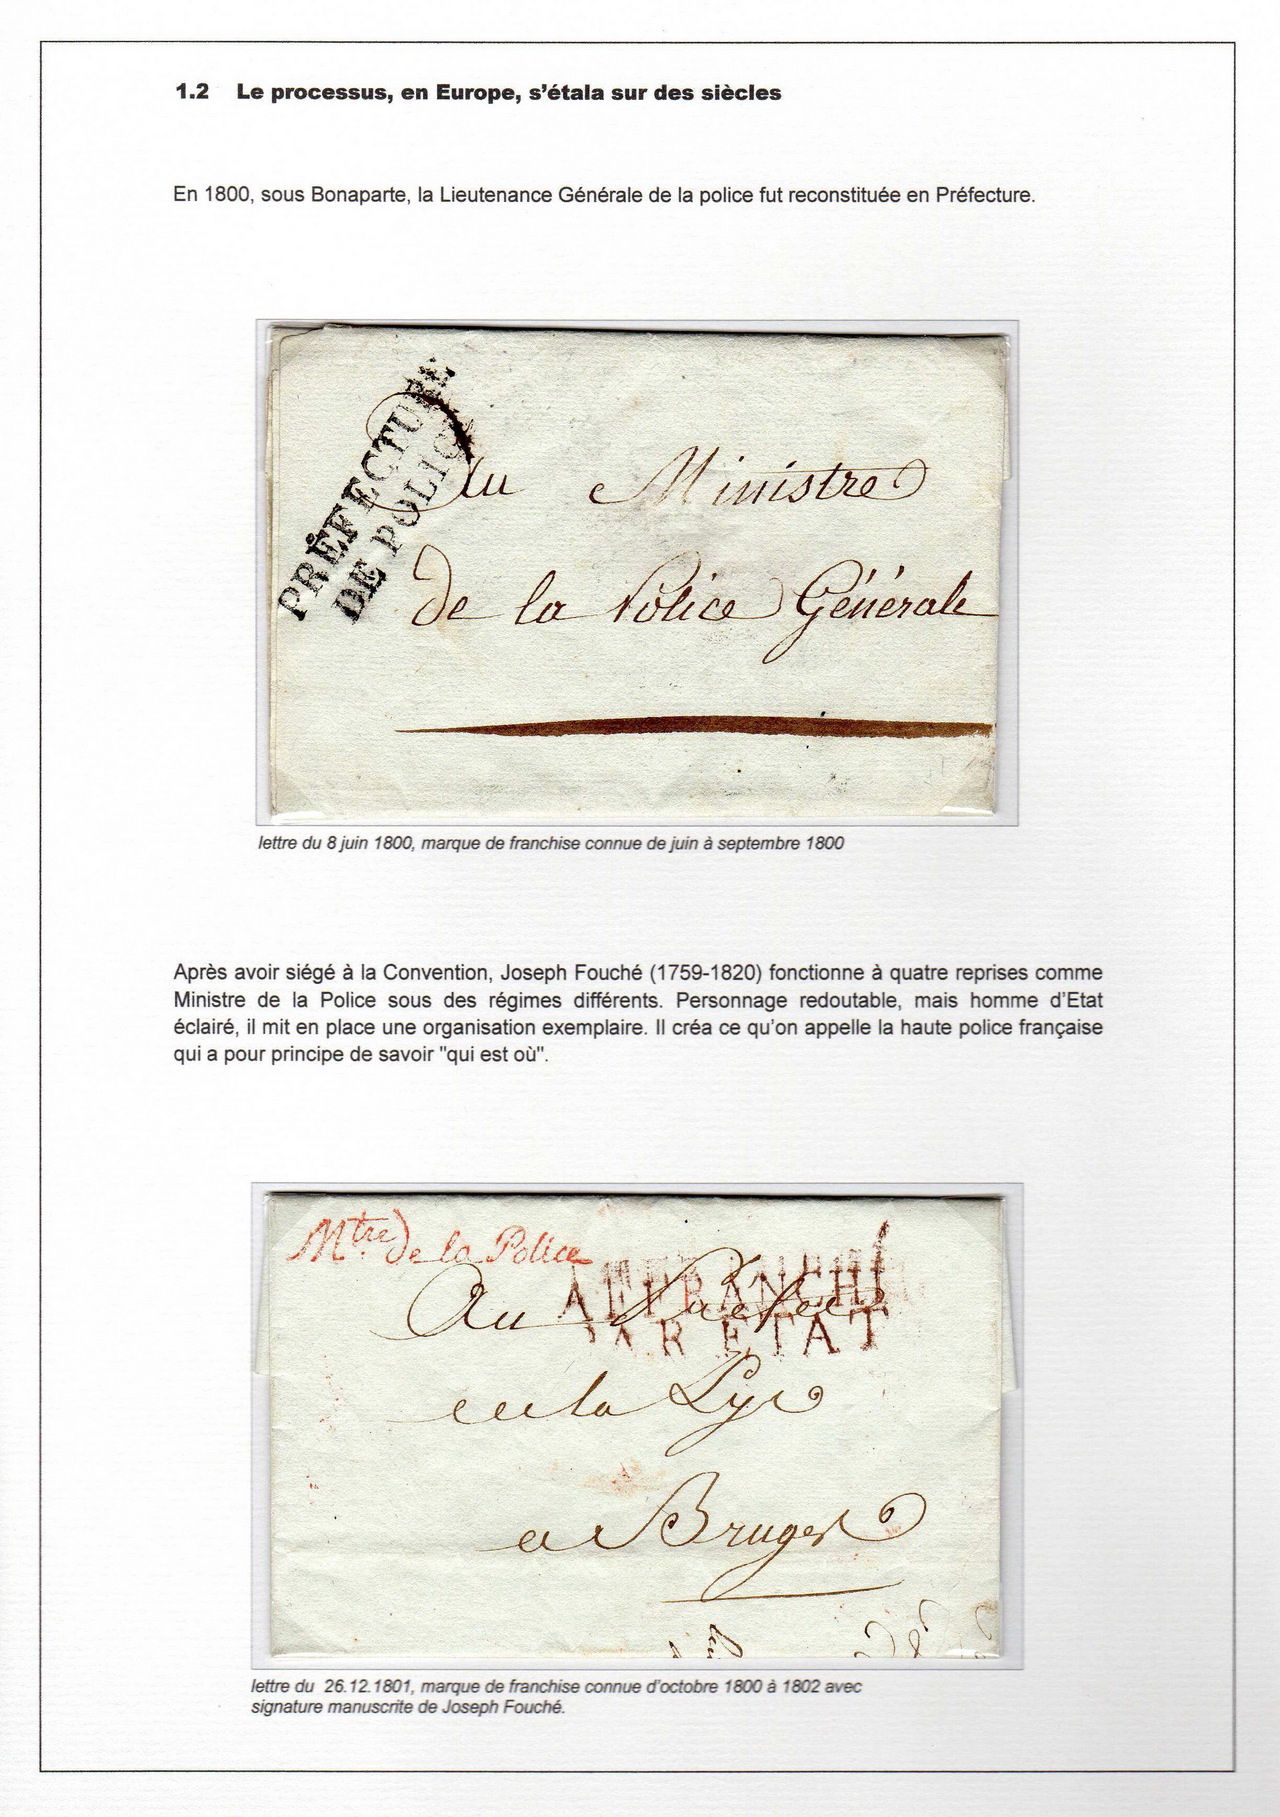 1.2 Le processus, en Europe, s'étala sur des siècles
En 1800, sous Bonaparte, la Lieutenance Générale de la police fut reconstituée en Préfecture.
PRÉFECTURE
DE POLICE
Au Ministre
de la Police Générale
lettre du 8 juin 1800, marque de franchise connue de juin à septembre 1800
Après avoir siégé à la Convention, Joseph Fouché (1759-1820) fonctionne à quatre reprises comme
Ministre de la Police sous des régimes différents. Personnage redoutable, mais homme d'Etat
éclairé, il mit en place une organisation exemplaire. Il créa ce qu'on appelle la haute police française
qui a pour principe de savoir "qui est où".
Mtre de la Police
AFFRANCHI
PAR ETAT
Au Préfet
de la Lys
a Bruges
lettre du 26.12.1801, marque de franchise connue d'octobre 1800 à 1802 avec
signature manuscrite de Joseph Fouché.